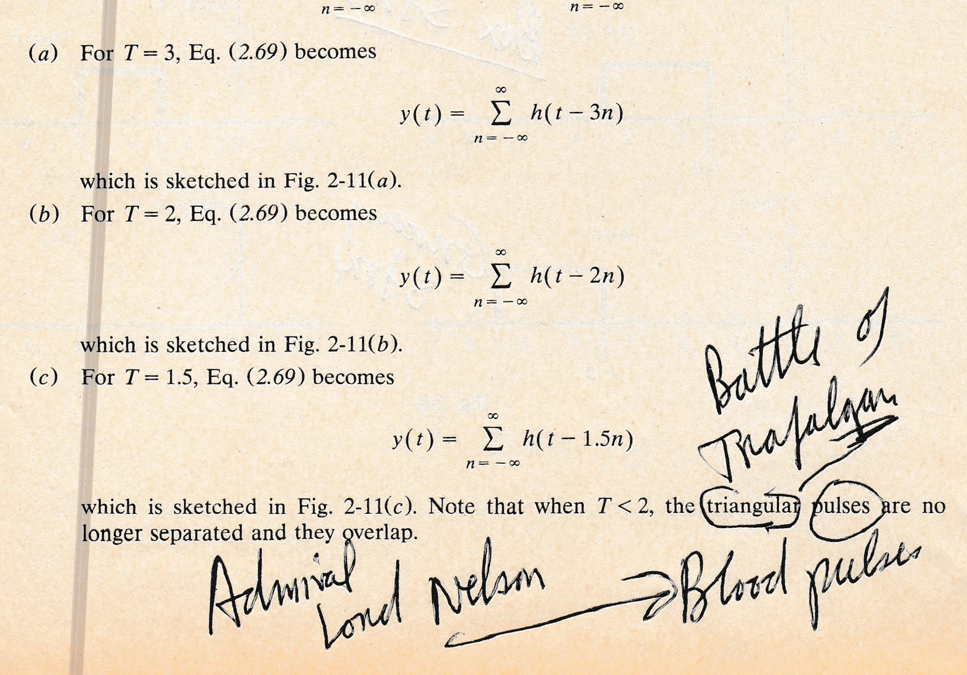 n = −∞ n = −∞
(a) For T = 3, Eq. (2.69) becomes
y(t) = ∑ h(t − 3n)
∞
n = −∞
which is sketched in Fig. 2-11(a).
(b) For T = 2, Eq. (2.69) becomes
y(t) = ∑ h(t − 2n)
∞
n = −∞
which is sketched in Fig. 2-11(b).
(c) For T = 1.5, Eq. (2.69) becomes
y(t) = ∑ h(t − 1.5n)
∞
n = −∞
Battle of
Trafalgar
which is sketched in Fig. 2-11(c). Note that when T < 2, the triangular pulses are no
longer separated and they overlap.
Admiral
Lord Nelson → Blood pulses